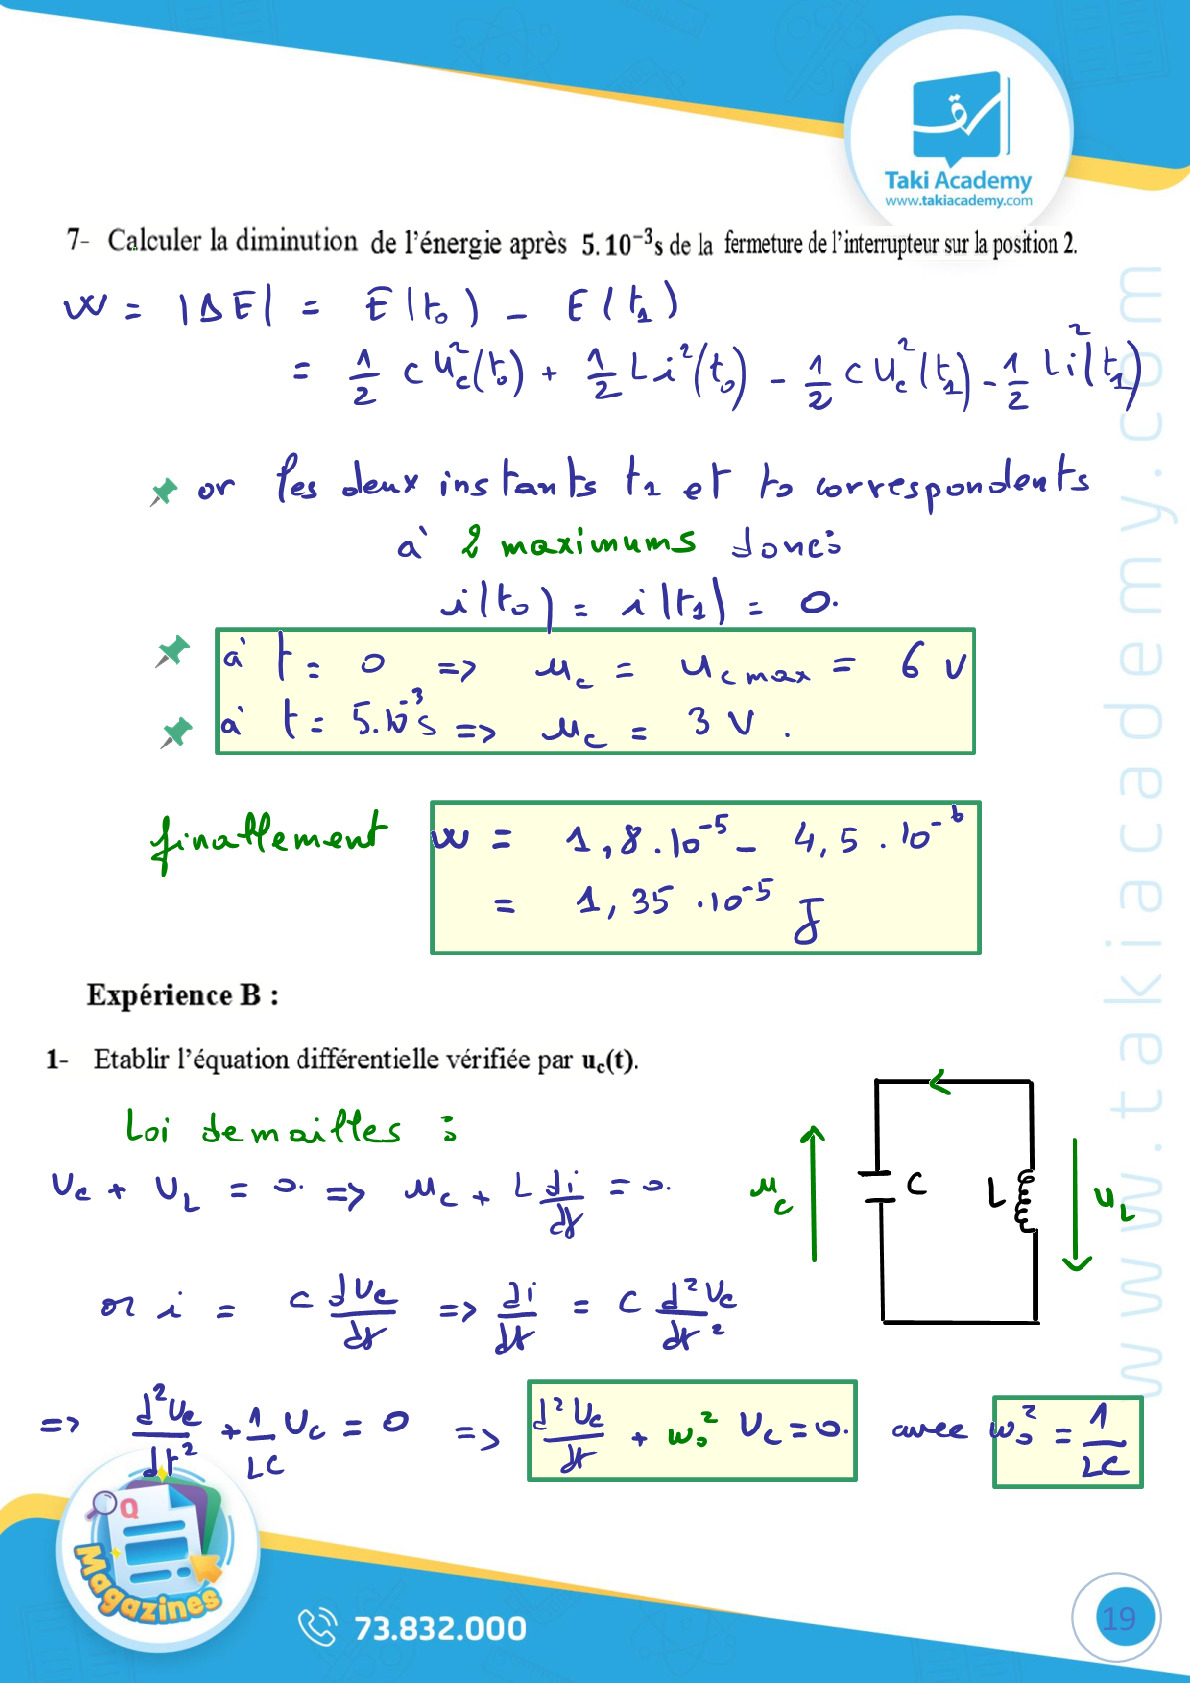 Taki Academy
www.takiacademy.com
7- Calculer la diminution de l'énergie après 5.10⁻³s de la fermeture de l'interrupteur sur la position 2.
W = |ΔE| = E(t₀) - E(t₁)
= 1/2 C Uc²(t₀) + 1/2 L i²(t₀) - 1/2 C Uc²(t₁) - 1/2 L i²(t₁)
or les deux instants t₁ et t₀ correspondents
à 2 maximums donc :
i(t₀) = i(t₁) = 0.
à t = 0 => uc = uc max = 6 V
à t = 5.10⁻³s => uc = 3 V.
finallement W = 1,8.10⁻⁵ - 4,5.10⁻⁶
= 1,35.10⁻⁵ J
Expérience B :
1- Etablir l'équation différentielle vérifiée par uc(t).
Loi de mailles :
Uc + UL = 0. => uc + L di/dt = 0.
uc C L uL
or i = C dUc/dt => di/dt = C d²Uc/dt²
=> d²Uc/dt² + 1/LC Uc = 0 => d²Uc/dt + w₀² Uc = 0. avec w₀² = 1/LC
www.takiacademy.com
Q
Magazines
73.832.000
19